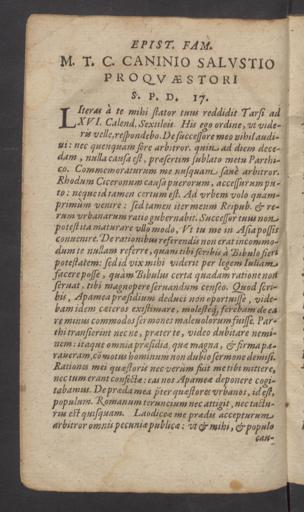 EPIST. FAM.
M. T. C. CANINIO SALVSTIO
PROQVÆSTORI
S. P. D. 17.
LIteras à te mihi stator tuus reddidit Tarsi ad
XVI. Calend. Sextileis. His ego ordine, vt vide-
ris velle, respondebo. De successore meo nihil audi-
ui: nec quenquam fore arbitror. quin ad diem dece-
dam, nulla causa est, præsertim sublato metu Parthi-
co. Commemoraturum me nusquam sanè arbitror.
Rhodum Ciceronum causa puerorum, accessurum pu-
to: neque id tamen certum est. Ad vrbem volo quam-
primùm venire: sed tamen iter meum Reipub. & re-
rum vrbanarum ratio gubernabit. Successor tuus non
potest ita maturare vllo modo, Vt tu me in Asia possis
conuenire. De rationibus referendis non erat incommo-
dum te nullam referre, quam tibi scribis à Bibulo fieri
potestatem: sed id vix mihi videris per legem Iuliam
facere posse, quàm Bibulus certa quadam ratione non
seruat. tibi magnopere seruandum censeo. Quod scri-
bis, Apamea præsidium deduci non oportuisse, vide-
bam idem cæteros existimare, molestéq; ferebam de ea
re minus commodos sermones maleuolorum fuisse. Par-
thi transierint nec ne, præter te, video dubitare nemi-
nem: itaque omnia præsidia, quæ magna, & firma pa-
raueram, cōmotus hominum non dubio sermone demisi.
Rationes mei quæstoris nec verùm fuit me tibi mittere,
nec tum erant confectæ: eas nos Apameæ deponere cogi-
tabamus. De præda mea pter quæstores vrbanos, id est,
populum. Romanum teruncium nec attigit, nec tactu-
rus est quisquam. Laodiceæ me prædes accepturum
arbitror omnis pecuniæ publicæ: vt & mihi, & populo
cau-